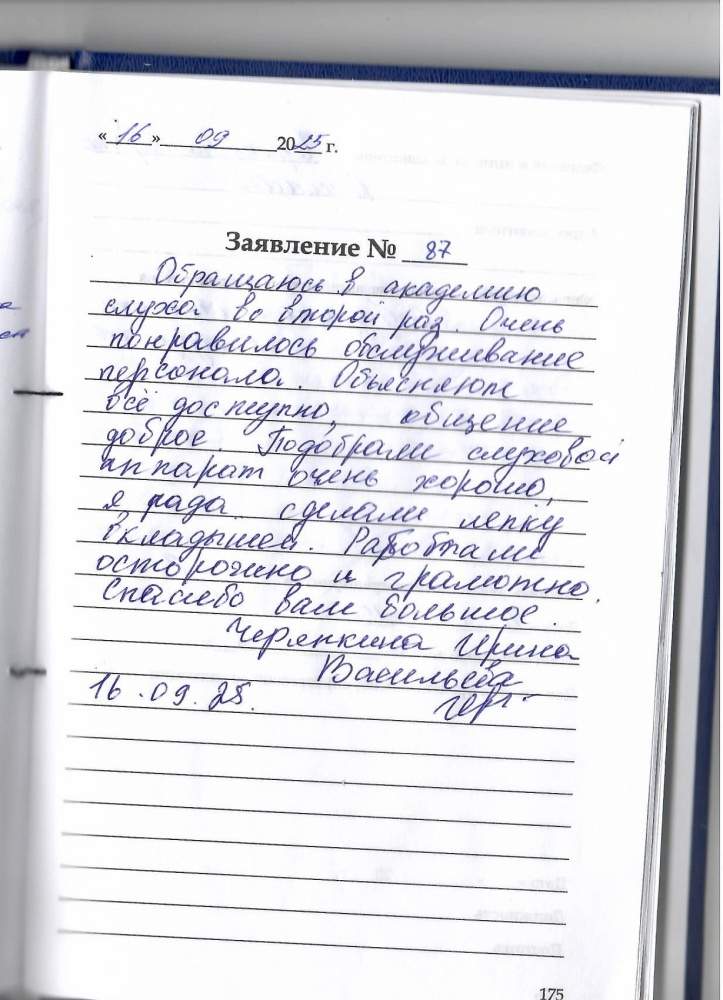 « 16 » 09 2025 г.
Заявление № 87
Обращаюсь в академию
слуха во второй раз. Очень
понравилось обслуживание
персонала. Объясняют
всё доступно, общение
доброе Подобрали слуховой
аппарат очень хорошо,
я рада сделали лепку
вкладышей. Работали
осторожно и грамотно.
Спасибо вам большое.
Ирина
Васильевa
16.09.25.
175